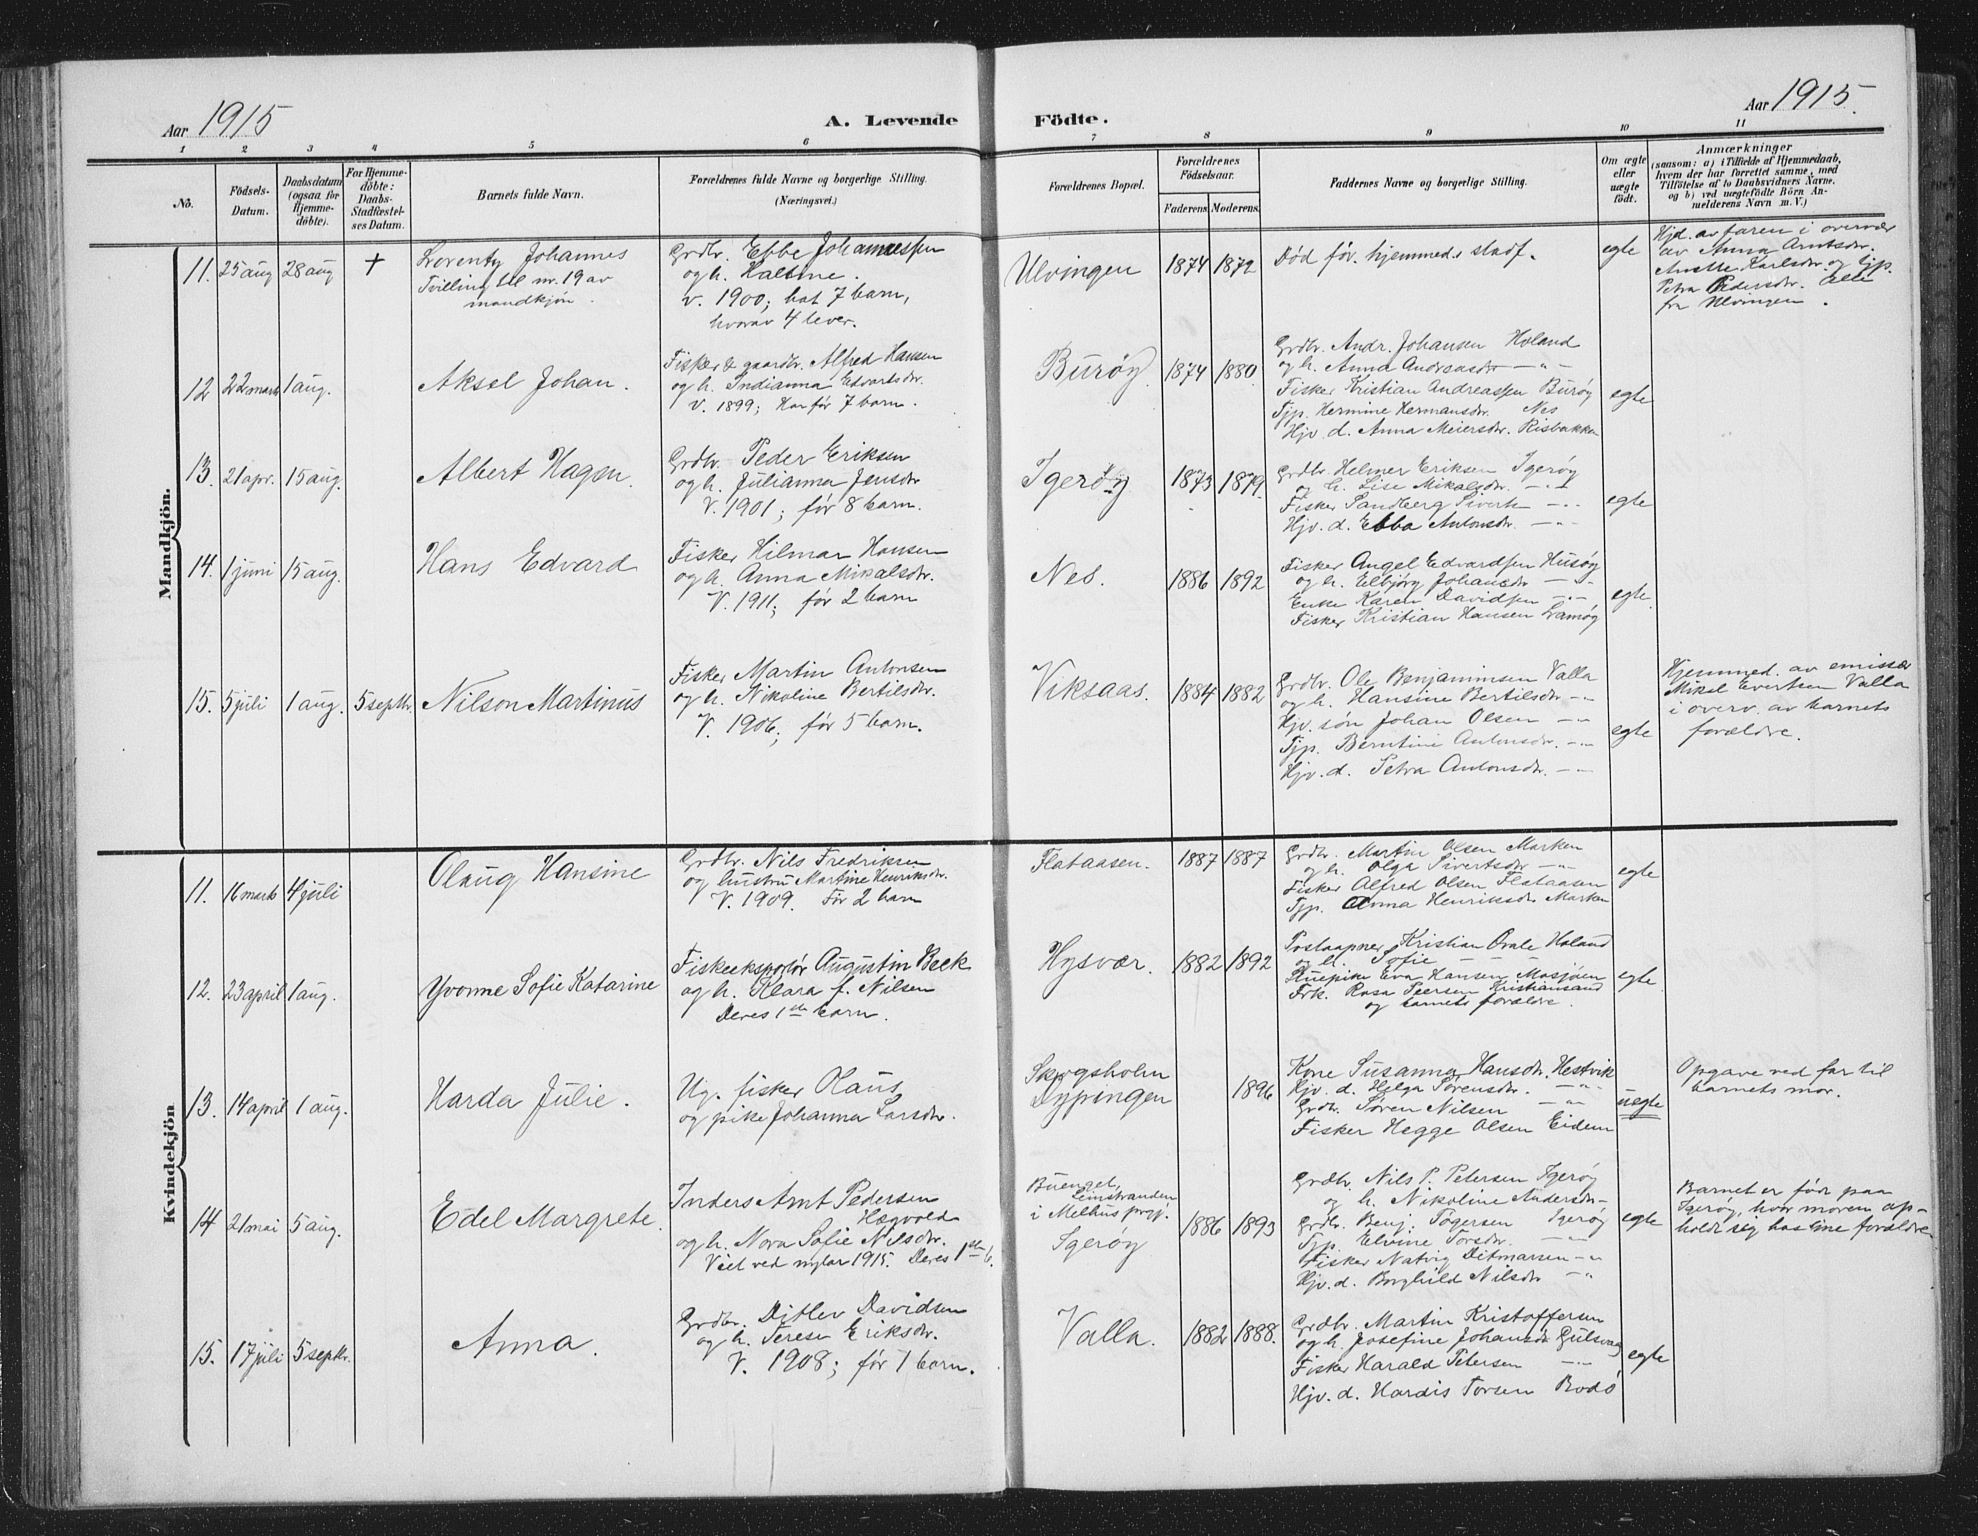 Aar 1915
A. Levende Födte.
Aar 1915.
1 2 3 4 5 6 7 8 9 10 11
No.
Födsels-Datum.
Daabsdatum (ogsaa for Hjemmedöbte).
For Hjemmedöbte: Daabs-Stadfæstelses Datum.
Barnets fulde Navn.
Forældrenes fulde Navne og borgerlige Stilling.
(Næringsvei.)
Forældrenes Bopæl.
Forældrenes Födselsaar.
Faderens. Moderens.
Faddernes Navne og borgerlige Stilling.
Om ægte eller uægte födt.
Anmærkninger
(saasom: a) i Tilfælde af Hjemmedaab,
hvem der har forrettet samme, med
Tilföielse af to Daabsvidners Navne.
og b) ved uægtefödte Börn An-
melderens Navn m. V.)
Mandkjön.
11. 25 aug 28 aug +
Lorentz Johannes
Tvilling til nr. 19 av
mandkjøn.
Grdbr. Ebbe Johannessen
og h. Haltine.
v. 1900; hat 7 barn,
hvorav 4 lever.
Ulvingen 1874 1872
Død før hjemmed. stadf.
egte
Hjd. av faren i overvær
av Anna Arntsdr.
Anette Karlsdr. og tjp.
Petra Pedersdr. Alle
fra Ulvingen.
12 22 marts 1 aug.
Aksel Johan.
Fisker & gaardbr. Alfred Hansen
og h. Indianna Edvartsdr.
V. 1899; Har før 7 barn.
Burøy 1874 1880.
Grdbr. Andr. Johansen Holand
og h. Anna Andreasdr — " -
Fisker Kristian Andreassen Burøy
Tjp. Hermine Hermansdr. Nes
Hjv. d. Anna Meiersdr. Risbakken
egte
13. 21 apr. 15 aug.
Albert Hagen.
Grdbr. Peder Eriksen
og h. Julianna Jensdr
V. 1901; før 8 barn.
Igerøy 1873 1879.
Grdbr. Helmer Eriksen Igerøy
og h. Lise Mikalsdr. — " -
Fisker Sandberg Sivert — " -
Hjv. d. Ebba Antonsdr. — " -
egte
14. 1 juni 15 aug.
Hans Edvard
Fisker Hilmar Hansen
og h. Anna Mikalsdr.
V. 1911; før 2 barn
Nes. 1886 1892
Fisker Angel Edvardsen Husøy
og h. Elbjørg Johansdr — " -
Enke Karen Davidsen — " -
Fisker Kristian Hansen Lamøy
egte.
15. 5 juli 1 aug. 5 septbr.
Nilson Martinus
Fisker Martin Antonsen
og h. Nikoline Bertilsdr.
V. 1906; før 5 barn.
Viksaas. 1884 1882
Grdbr. Ole Benjaminsen Valla
og h. Hansine Bertilsdr. — " -
Hjv. søn Johan Olsen — " -
Tjp. Berntine Antonsdr. — " -
Hjv. d. Petra Antonsdr. — " -
egte
Hjemmed. av emissær
Mikal Evertsen Valla
i overv. av barnets
forældre.
Kvindekjön
11. 16 marts 4 juli
Olaug Hansine
Grdbr. Nils Fredriksen
og hustru Martine Henriksdr.
V. 1909. Før 2 barn
Flataasen. 1887 1887
Grdbr. Martin Olsen Marken
og h. Olga Sivertsdr — " -
Fisker Alfred Olsen Flataasen
Tjp. Anna Henriksdr Marken
egte
12. 23 april 1 aug.
Yvonne Sofie Katarine
Fiskeeksportør Augustin Beck
og h. Klara f. Nilsen
Deres 1ste barn.
Hysvær. 1882 1892
Postaapner Kristian Ovale Holand
og h. Sofie — — —
Stuepike Eva Hansen Mosjøen
Frk. Rosa Peersen Kristiansand
og barnets forældre.
egte
13. 14 april 1 aug.
Harda Julie.
Ug. fisker Olaus
og pike Johanna Larsdr.
Skogsholm
Dypingen
1896
Kone Susanna Hansdr. Hestvik
Hjv. d. Helga Sørensdr. — " -
Grdbr. Søren Nilsen — " -
Fisker Hegge Olsen Eidem
uegte
Opgave ved far til
barnets mor.
14 21 mai 5 aug.
Edel Margrete.
Inders Arnt Pedersen
Hægvold
og h. Nora Sofie Nilsdr.
Viet ved nytar 1915. Deres 1ste b.
Buengel,
Leinstranden
i Melhus prgj.
Igerøy
1886 1893
Grdbr. Nils P. Petersen Igerøy
og h. Nikoline Andersdr —
Grdbr. Benj. Togersen Igerøy
Tjp. Elvine Torsdr. — " -
Fisker Natvig Ditmarsen — " -
Hjv. d. Borghild Nilsdr — " -
egte
Barnet er født paa
Igerøy, hvor moren op-
holdt sig hos sine forældre
15. 17 juli 5 septbr.
Anna.
Grdbr. Ditlev Davidsen
og h. Terese Eriksdr.
V. 1908; før 1 barn.
Valla. 1882 1888.
Grdbr. Martin Kristoffersen
og h. Josefine Johansdr Gulsvag
Fisker Harald Petersen — " -
Hjv. d. Hardis Torsen Bodø
egte